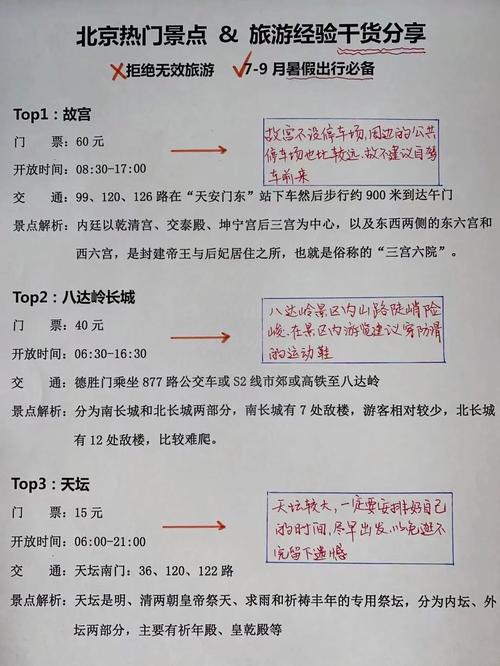 北京热门景点 & 旅游经验干货分享
拒绝无效旅游 7-9月暑假出行必备
Top1：故宫
门 票：60元
开放时间：08:30-17:00
故宫不设停车场，周边的公共
停车场也比较远。故不建议自驾
车前来
交 通：99、120、126路在“天安门东”站下车然后步行约900米到达午门
景点解析：内廷以乾清宫、交泰殿、坤宁宫后三宫为中心，以及东西两侧的东六宫和
西六宫，是封建帝王与后妃居住之所，也就是俗称的“三宫六院”。
Top2：八达岭长城
门 票：40元
开放时间：06:30-16:30
八达岭景区内山路陡峭险
峻.在景区内游览建议穿防滑
的运动鞋
交 通：德胜门乘坐877路公交车或S2线市郊或高铁至八达岭
景点解析：分为南长城和北长城两部分，南长城有7处敌楼，游客相对较少，北长城
有12处敌楼，比较难爬。
Top3：天坛
门 票：15元
开放时间：06:00-21:00
天坛较大，一定要安排好自己
的时间，尽早出发，以免逛不
完留下遗憾
交 通：天坛南门：36、120、122路
景点解析：天坛是明、清两朝皇帝祭天、求雨和祈祷丰年的专用祭坛，分为内坛、外
坛两部分，主要有祈年殿、皇乾殿等